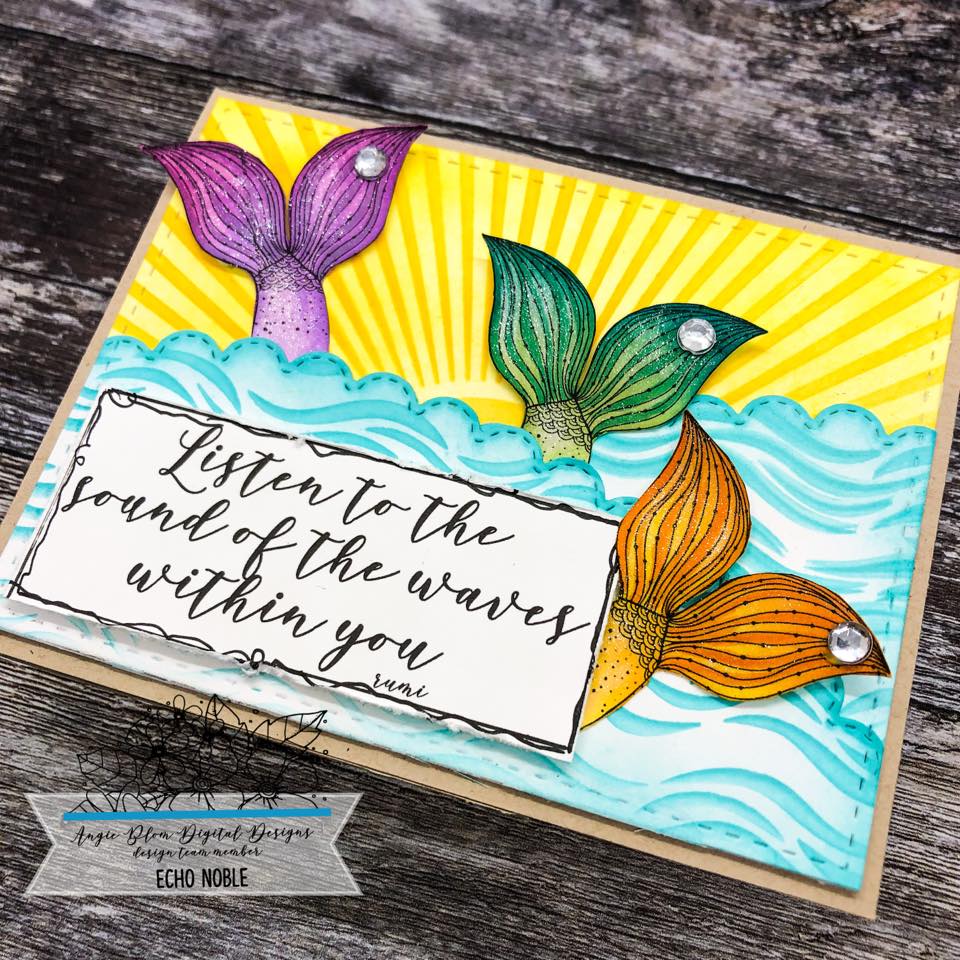 Listen to the
sound of the waves
within you
rumi
Angie Blom Digital Designs
design team member
ECHO NOBLE